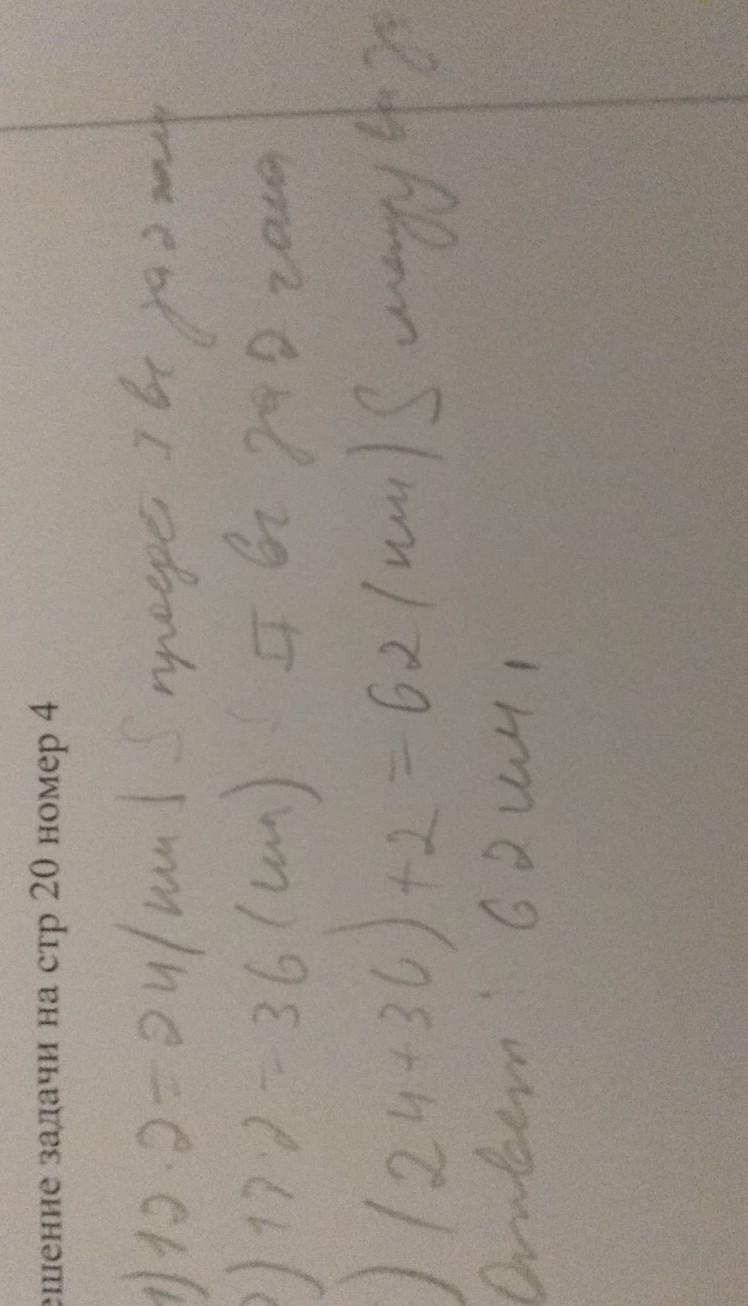 ешение задачи на стр 20 номер 4
1) 12·2=24(км) S проедет I вс за 2 часа
) 17·2=36(км) S II вс за 2 часа
) (24+36)+2=62(км) S между
Ответ: 62 км.